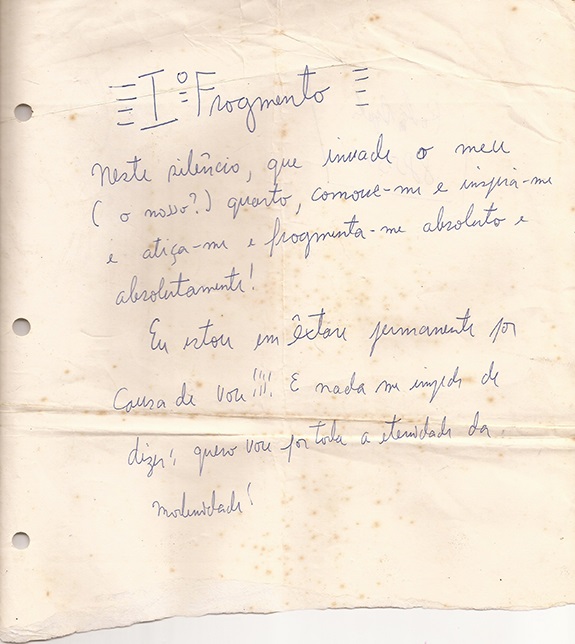 Iº Fragmento
Neste silêncio, que invade o meu
(o nosso?) quarto, comove-me e inspira-me
e atiça-me e fragmenta-me absoluto e
absolutamente!
Eu estou em êxtase permanente por
causa de você!!! E nada me impede de
dizer: quero você por toda a eternidade da
modernidade!